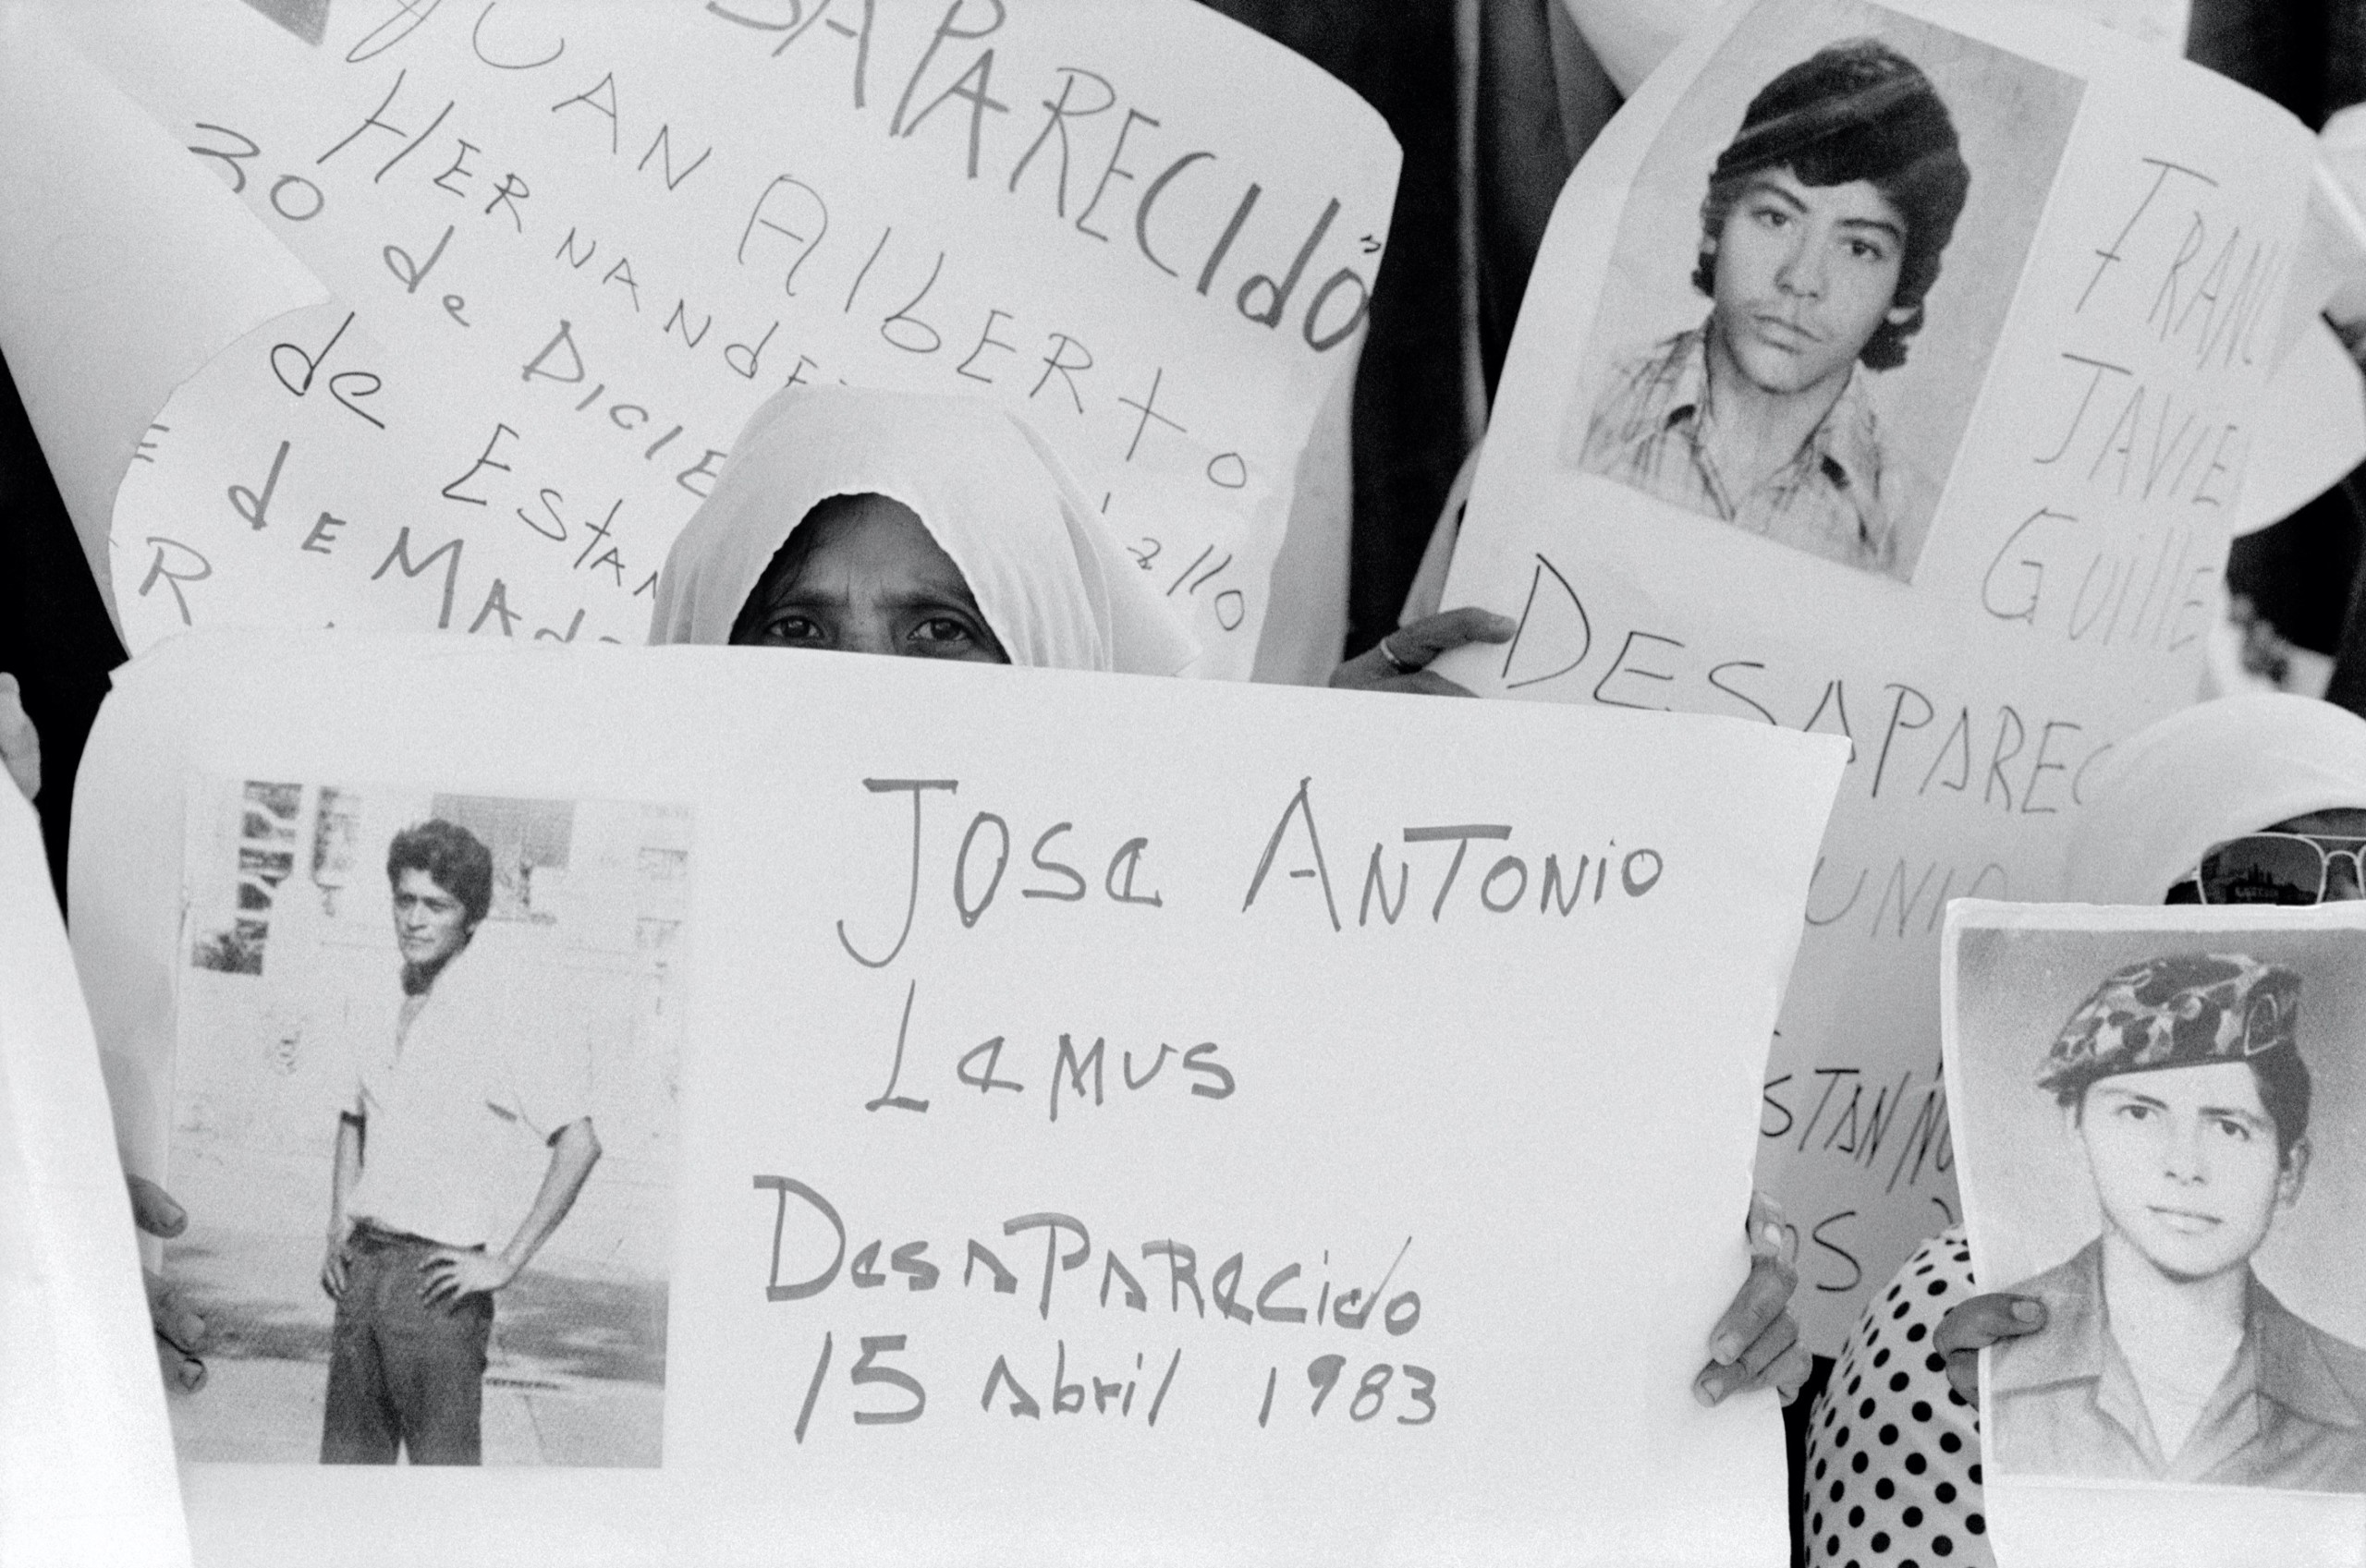 SAPARECIdO
JUAN AlbERto
HERNANdE
30 de DICIE
de EStAN
dE MAd
R
allo
FRANC
JAVIE
GUillE
DESAPAREC
UNIO
STAN NU
OS
JOSe ANTONio
LeMUS
DesAPARecido
15 Abril 1983